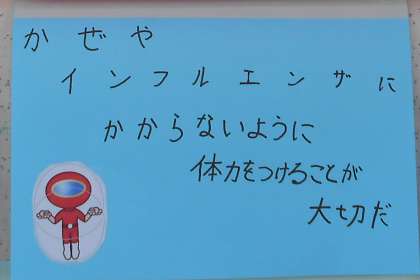 かぜや
インフルエンザに
かからないように
体力をつけることが
大切だ